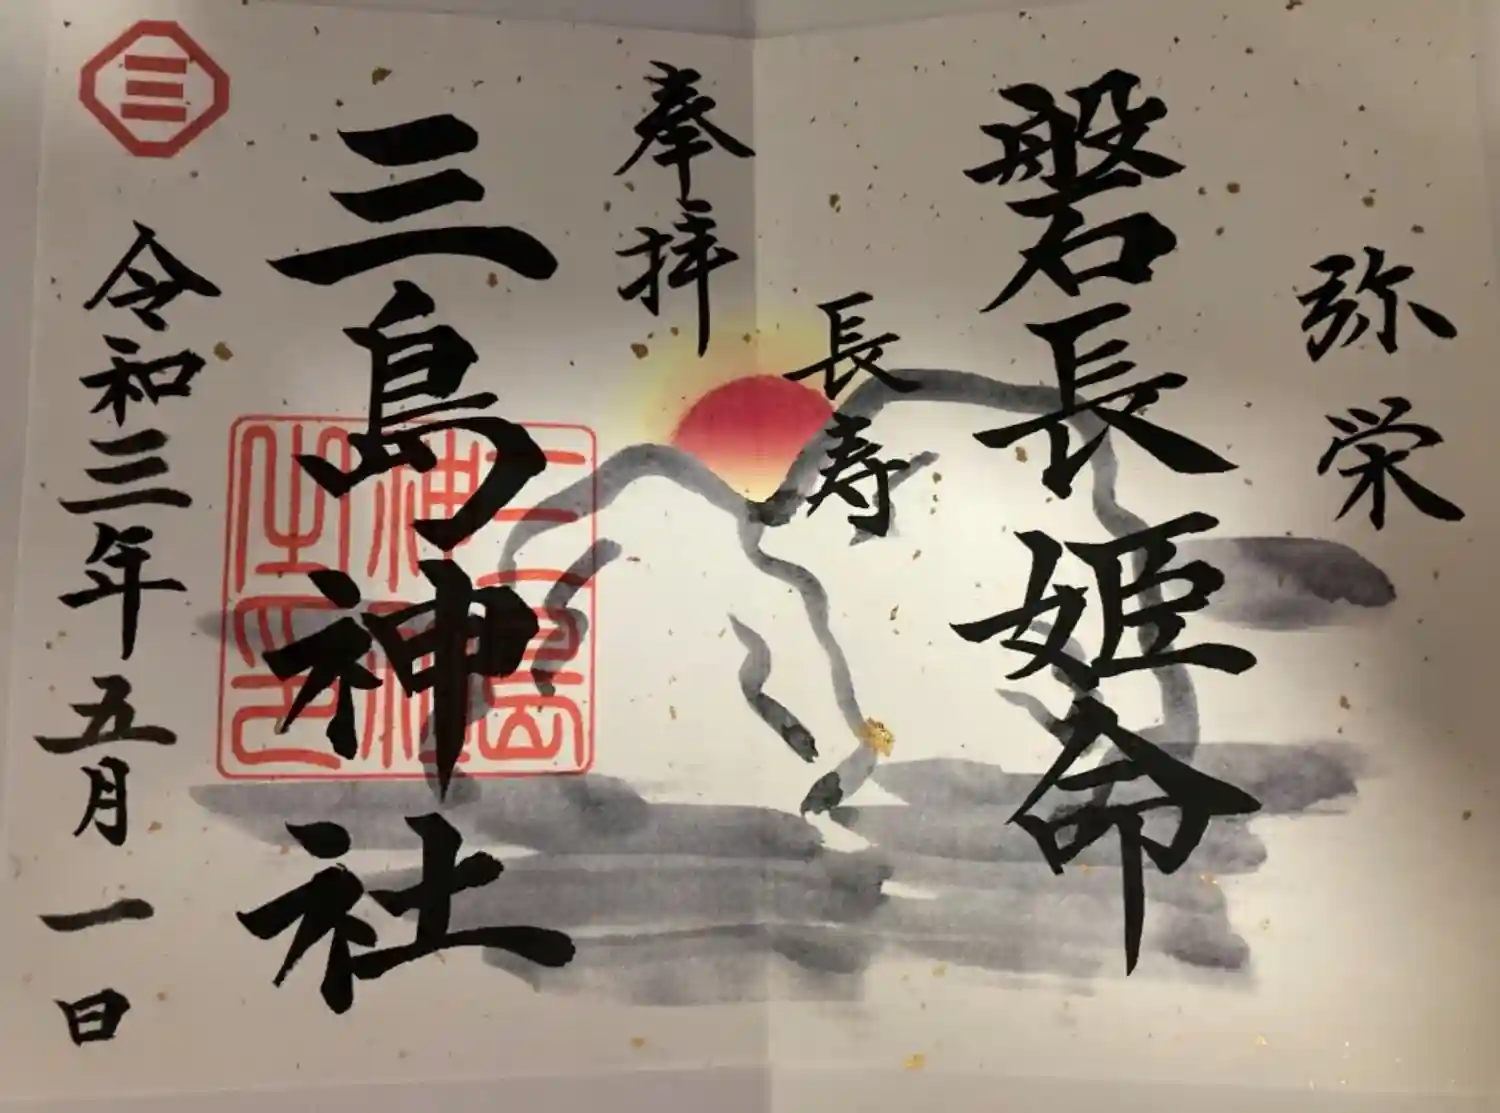 弥栄
磐長姫命
長寿
奉拝
三島神社
三島神社之印
令和三年五月一日
三